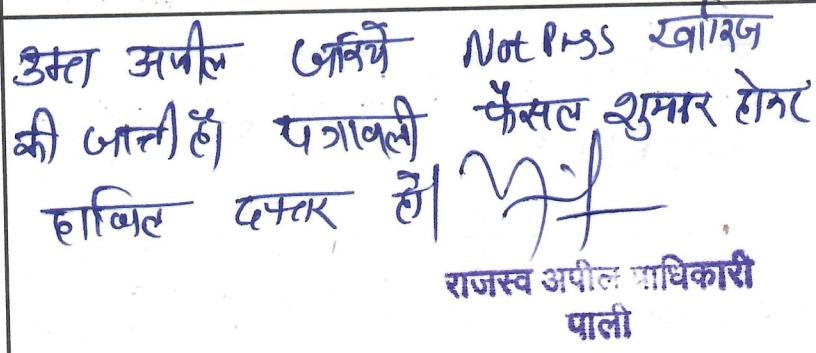 उक्त अपील जरिये Not Press खारिज
की जाती है। पत्रावली फैसल शुमार होकर
दाखिल दफ्तर हो।
राजस्व अपील प्राधिकारी
पाली